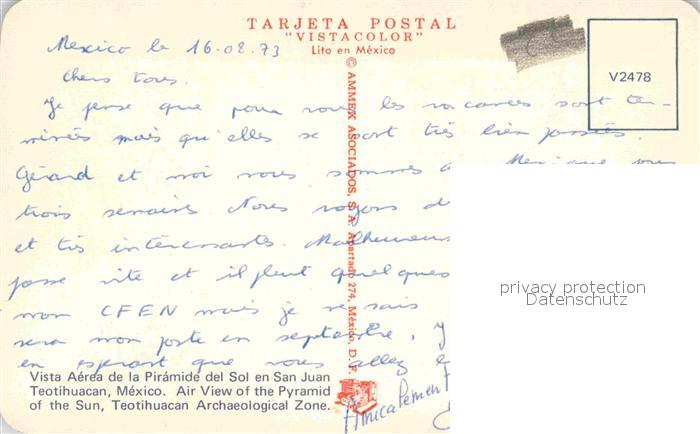 TARJETA POSTAL
"VISTACOLOR"
Lito en México
Mexico le 16.08.73
V2478
Chers tous.
Je pense que pour vous les vacances sont ter-
minées mais qu'elles se sont très bien passées.
Gérard et moi nous sommes au Mexique pour
trois semaines. Nous voyons d
et très intéressantes. Malheureus
passe vite et il pleut quelques
mon CFEN mais je ne sais
sera mon poste en septembre. J
en espérant que vous allez b
Amicalement
© AMMEX ASOCIADOS, S. A. Apartado 274, México, D. F.
privacy protection
Datenschutz
Vista Aérea de la Pirámide del Sol en San Juan
Teotihuacan, México. Air View of the Pyramid
of the Sun, Teotihuacan Archaeological Zone.